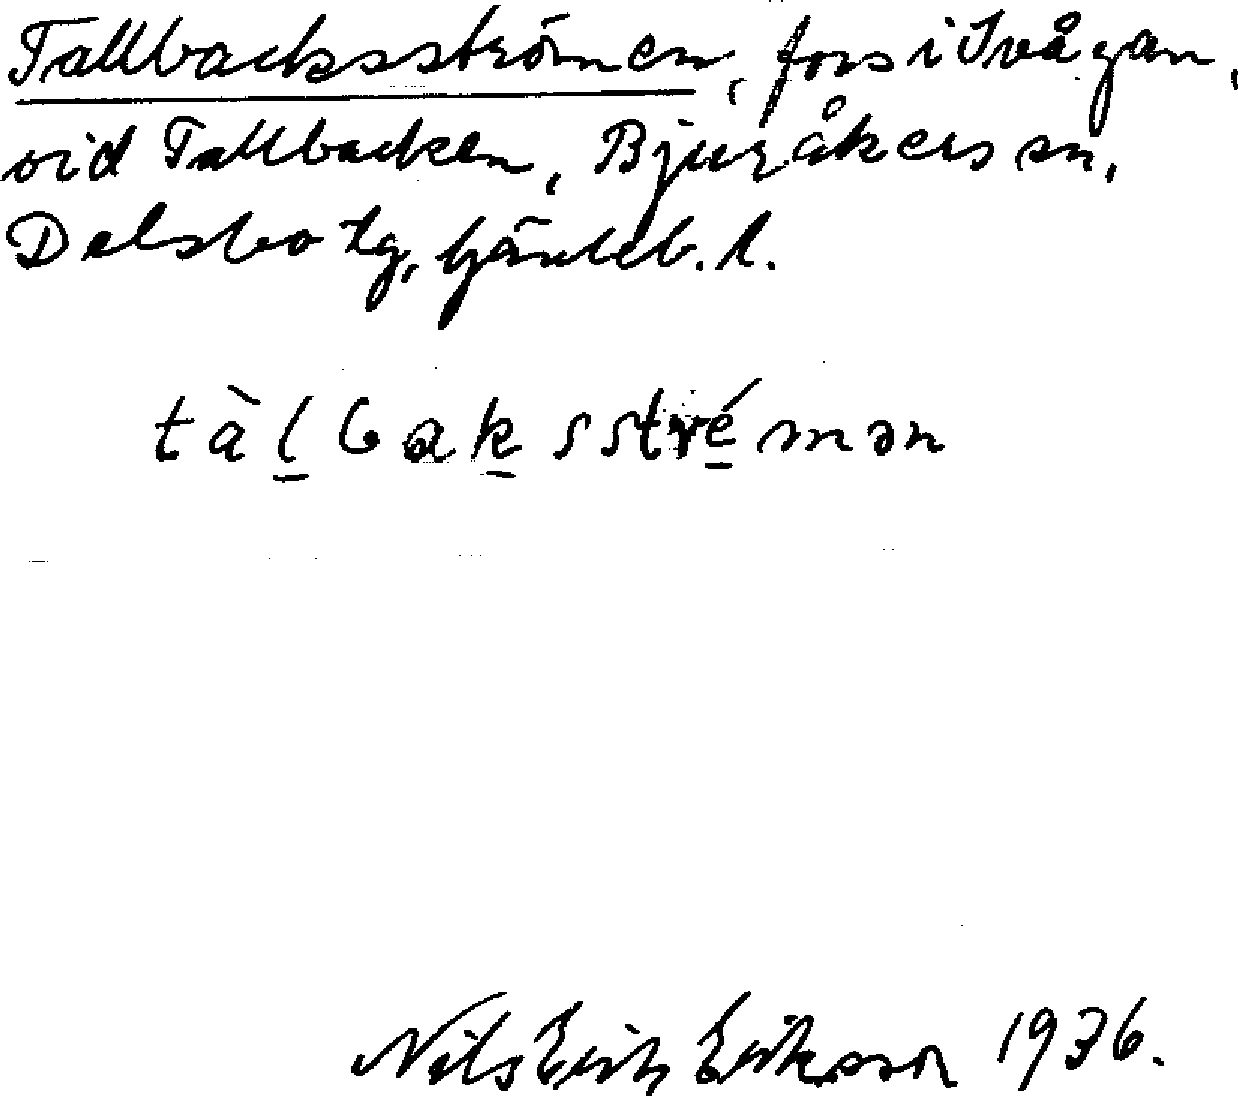 Tallbacksströmen, fors i Svågan,
vid Tallbacken, Bjuråkers sn,
Delsbo tg, Gävleb. l.
tàl̠bak̠sstré̠mən
Nils Erik Eriksson 1936.